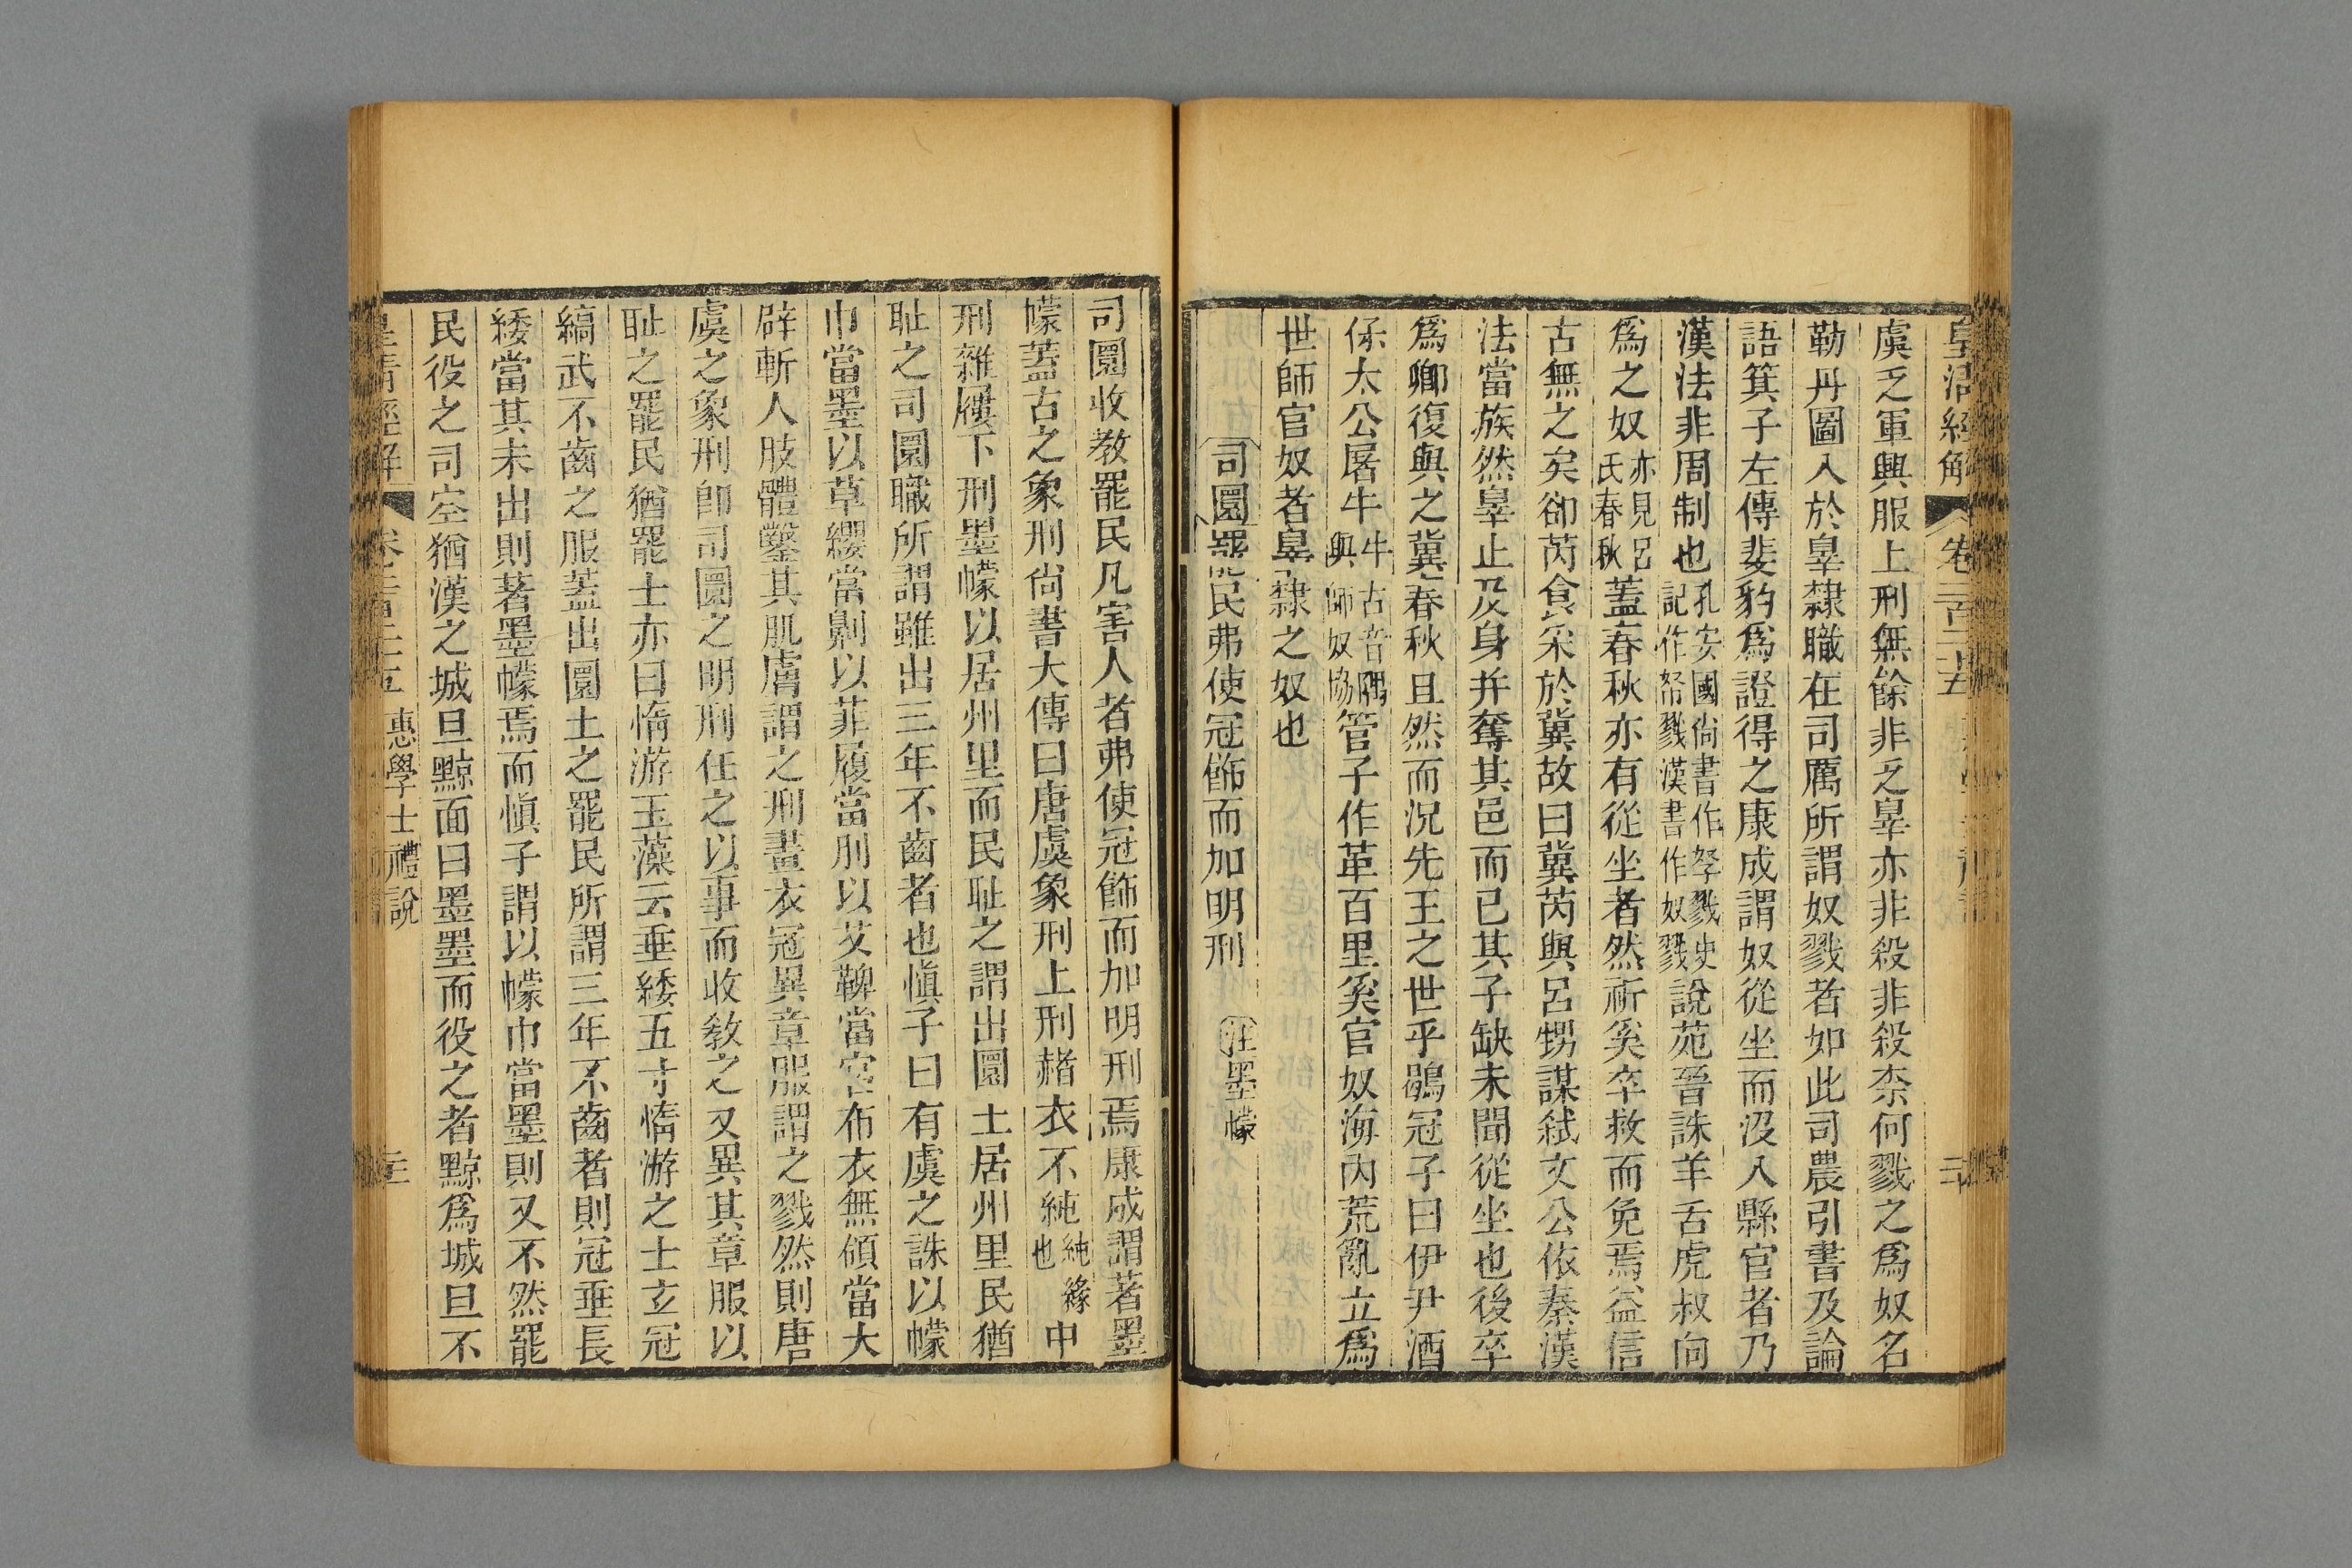 皇清經解 卷二百二十五
虞乏軍興服上刑無餘非乏辠亦非殺非殺柰何戮之爲奴名
勒丹圖入於辠隸職在司厲所謂奴戮者如此司農引書及論
語箕子左傳斐豹爲證得之康成謂奴從坐而沒入縣官者乃
漢法非周制也孔安國尚書作孥戮史記作帑戮漢書作奴戮說苑晉誅羊舌虎叔向
爲之奴亦見呂氏春秋蓋春秋亦有從坐者然祈奚卒救而免焉益信
古無之矣卻芮食采於冀故曰冀芮與呂甥謀弒文公依秦漢
法當族然辠止及身幷奪其邑而已其子缺未聞從坐也後卒
爲卿復與之冀春秋且然而況先王之世乎鶡冠子曰伊尹酒
保太公屠牛牛古音隅與師奴協管子作革百里奚官奴海內荒亂立爲
世師官奴者辠隸之奴也
司圜罷民弗使冠飾而加明刑 注墨幪
司圜收敎罷民凡害人者弗使冠飾而加明刑焉康成謂著墨
幪蓋古之象刑尚書大傳曰唐虞象刑上刑赭衣不純純緣也中
刑雜屨下刑墨幪以居州里而民耻之謂出圜土居州里民猶
耻之司圜職所謂雖出三年不齒者也愼子曰有虞之誅以幪
巾當墨以草纓當劓以菲履當刖以艾鞸當宮布衣無領當大
辟斬人肢體鑿其肌膚謂之刑畫衣冠異章服謂之戮然則唐
虞之象刑卽司圜之明刑任之以事而收敎之又異其章服以
耻之罷民猶罷士亦曰惰游玉藻云垂緌五寸惰游之士玄冠
縞武不齒之服蓋出圜土之罷民所謂三年不齒者則冠垂長
緌當其未出則著墨幪焉而愼子謂以幪巾當墨則又不然罷
民役之司空猶漢之城旦黥面曰墨墨而役之者黥爲城旦不
皇清經解 卷二百二十五 惠學士禮說